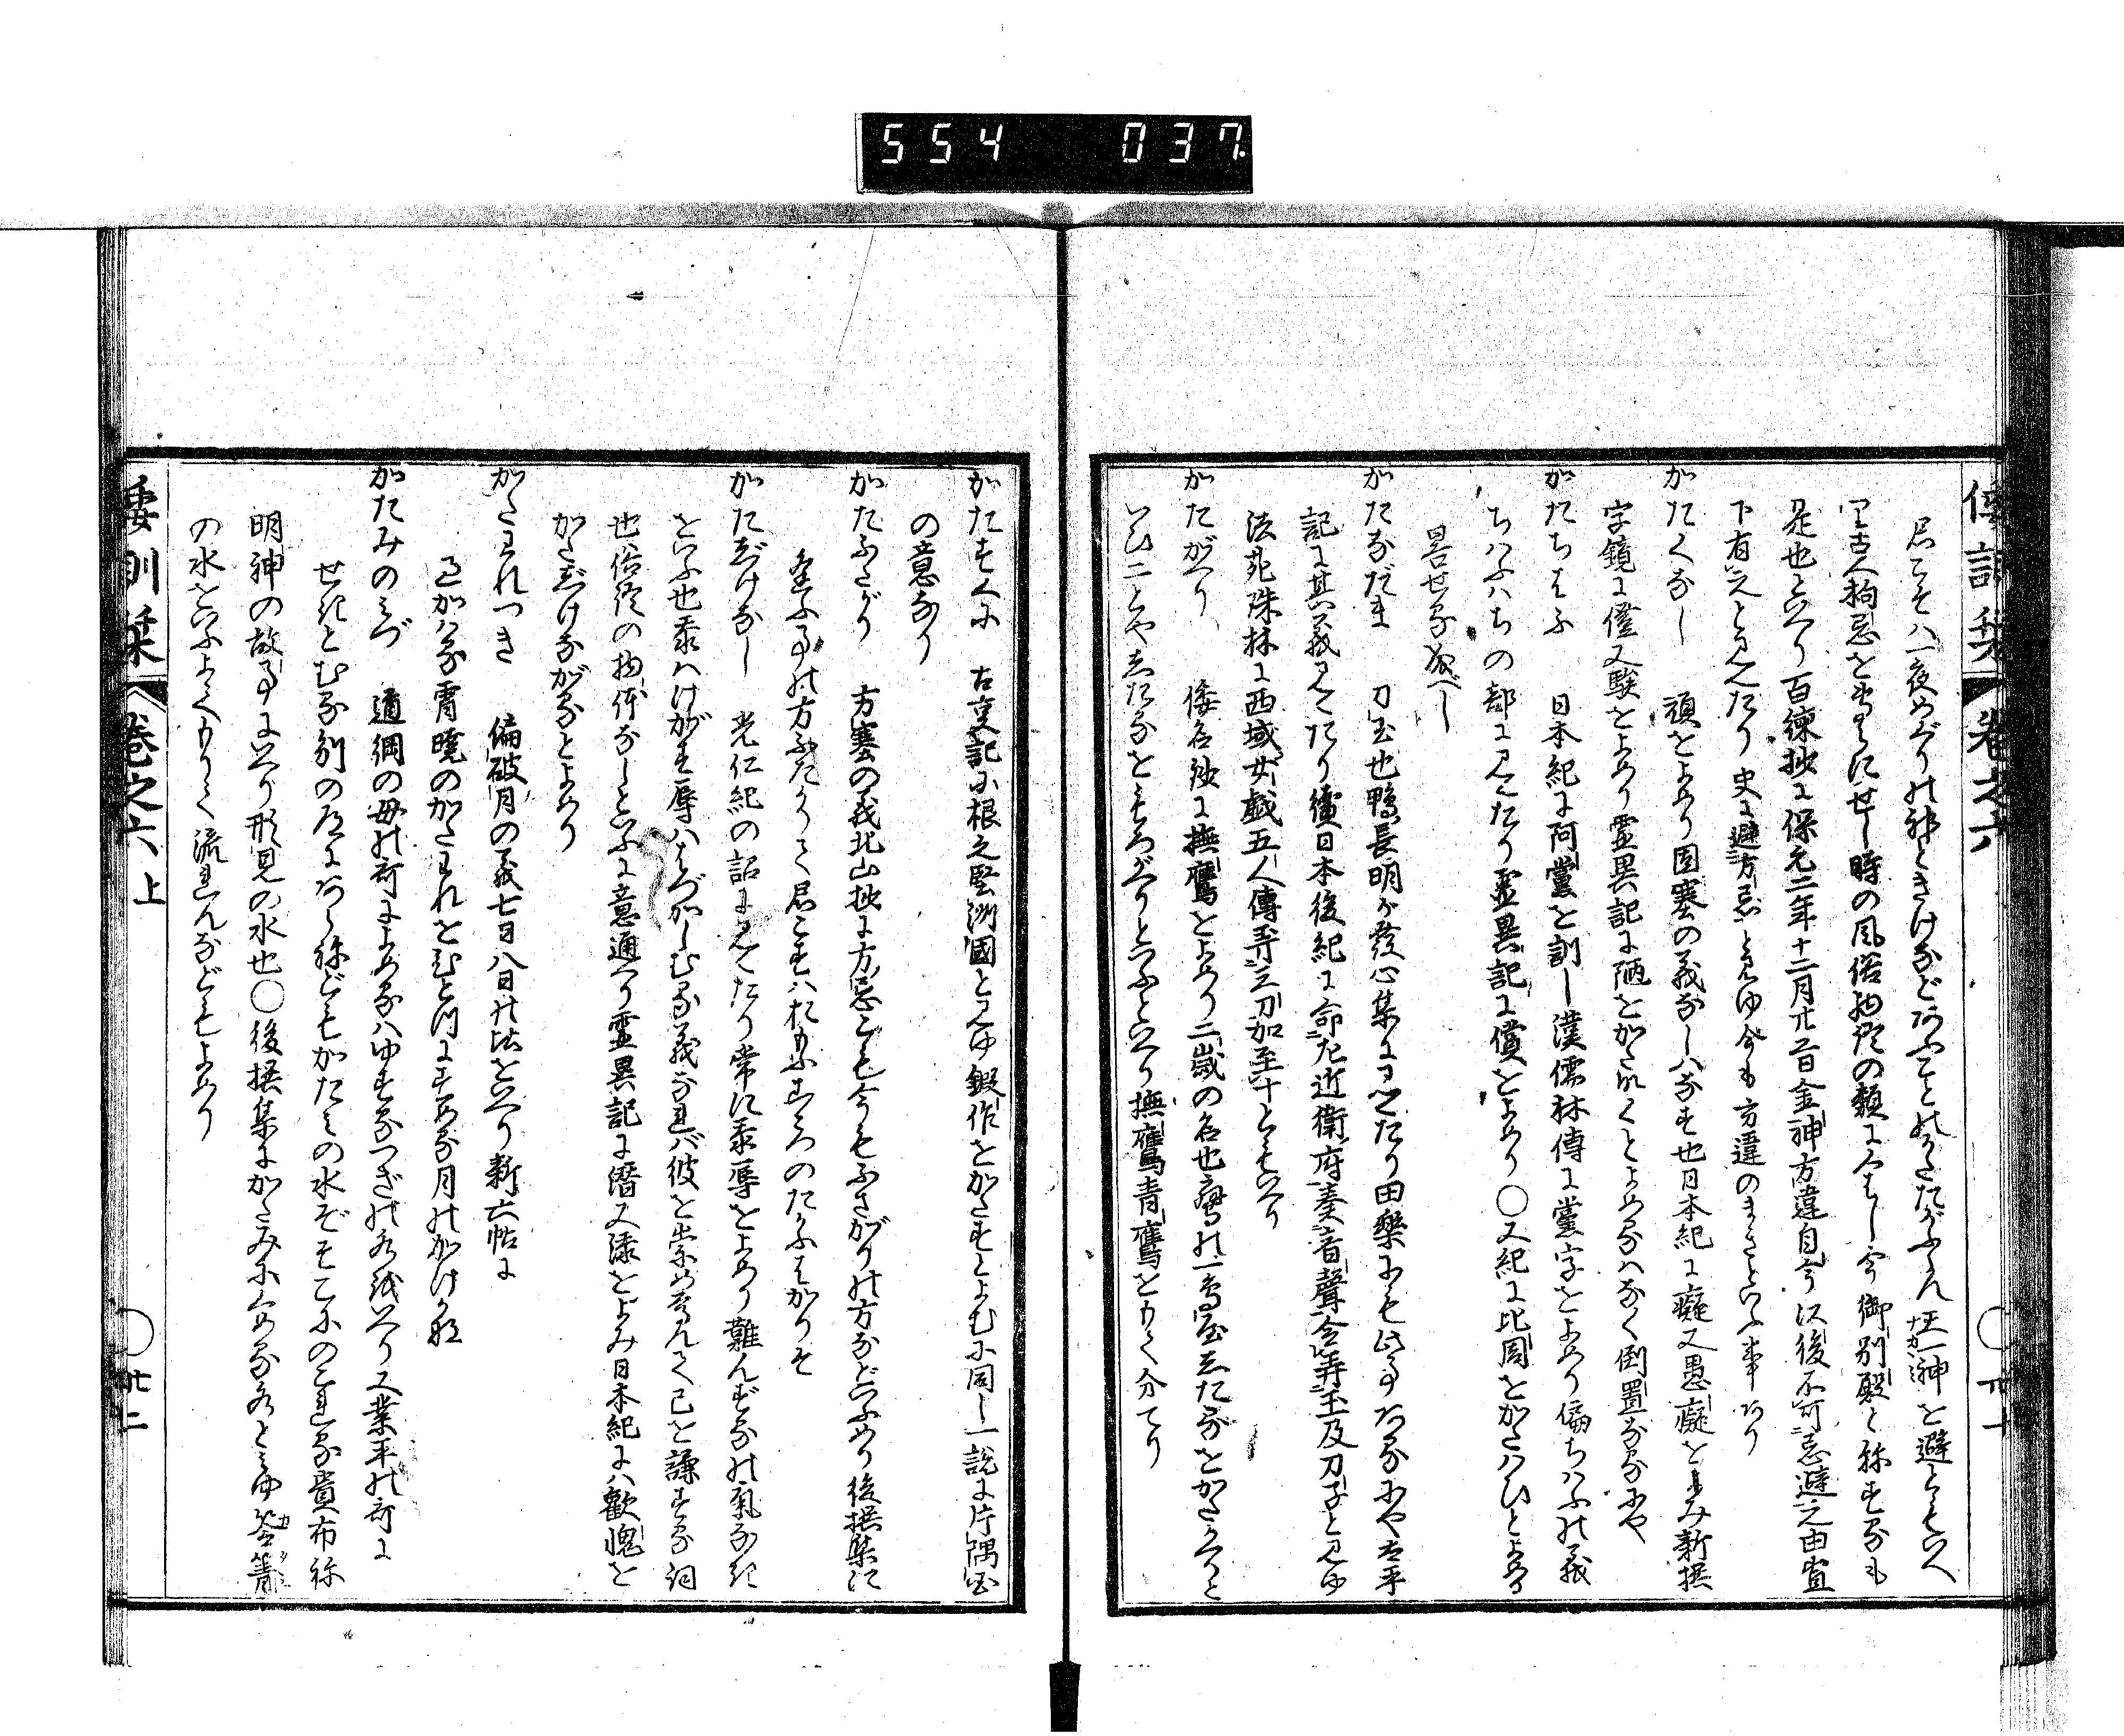 554 037
倭訓栞 卷之六 ○ 廿一
居こそハ一夜めぐりの神ときけなどあふことのかたたがふらん 王一神を避ともいへ
り古人拘忌を専らにせし時の風俗物忌の類にみえし今御別殿と称するも
是也といへり百練抄に保元二年十二月廿二日金神方違自今以後不可忌避之由宣
下有之と見えたり史に避方忌と見ゆ今も方違のまさといふ事あり
かたくなし 頑をよめり固塞の義なしハなす也日本紀に癡又愚癡をよみ新撰
字鏡に儓又騃をよめり霊異記に陋をかたかくとよめるハなく倒置なるにや
かたちはふ 日本紀に阿黨を訓し漢儒林傳に黨字をよめり偏ちハふの義
ちハふハちの部に見えたり霊異記に償をよめり○又紀に比周をかたハひとよめる
畧せる成べし
かたなだま 刀玉也鴨長明が發心集に見えたり田樂にも此事あるにや太平
記に其義見えたり續日本後紀に命左近衛府奏音聲令弄玉及刀子と見ゆ
法苑珠林に西域女戯五人傳弄三刀加至十ともいへり
かたがへり 倭名鈔に撫鷹をよめり二歳の名也鷹の一鳥屋したるをかたかへりと
いひ二とやしたるをもろがへりといふといへり撫鷹青鷹をもて分てり
かたすくに 古事記に根之堅洲國と見ゆ鍜作をかたすとよむに同し一説に片隅国
の意なり
かたふたがり 方塞の義北山抄に方忌とも今もふさがりの方などいふめり後撰集に
逢ふ事の方ふたがりて居こすハおもふこころのたがふはかりそ
かたじけなし 光仁紀の詔に見えたり常に忝辱をよめり難んずるの氣なき
をいふ也忝ハけがす辱ハはづかしむる義なれバ彼を崇め尊んて己を謙する詞
也俗終の物体なしといふに意通へり霊異記に潛又添をよみ日本紀にハ歡愧を
かたじけながるとよめり
かたわれつき 偏破月の義七日八日の比をいへり新六帖に
見かハる霄曉のかたわれをひとつにすめる月のかけかな
かたみのみづ 道綱の母の哥によめるハゆするつきの水をいへり又業平の哥に
せきとむる別の道にあらねどもかたみの水ぞそこにのこれる貴布祢
明神の故事にいへり形見の水也○後撰集にかたみに汲める水と見ゆ答篝
の水をいふよくもりて流れんなどもよめり
倭訓栞 卷之六上 ○ 廿二